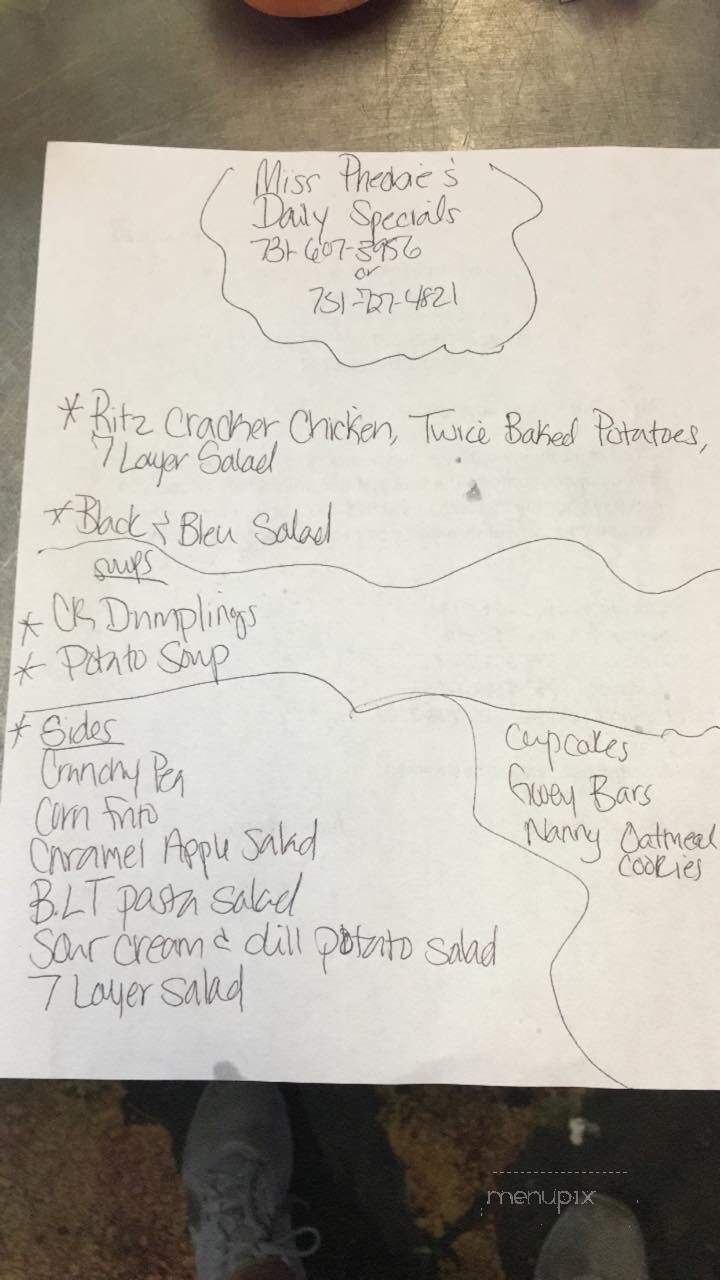 Miss Phebbie's
Daily Specials
731-607-3956
or
731-727-4821
* Ritz Cracker Chicken, Twice Baked Potatoes,
7 Layer Salad
* Black & Bleu Salad
Soups
* CK Dumplings
* Potato Soup
* Sides
Crunchy Pea
Corn Frito
Caramel Apple Salad
B.LT pasta salad
Sour cream & dill potato salad
7 Layer salad
Cupcakes
Gooey Bars
Nanny Oatmeal
Cookies
menupix